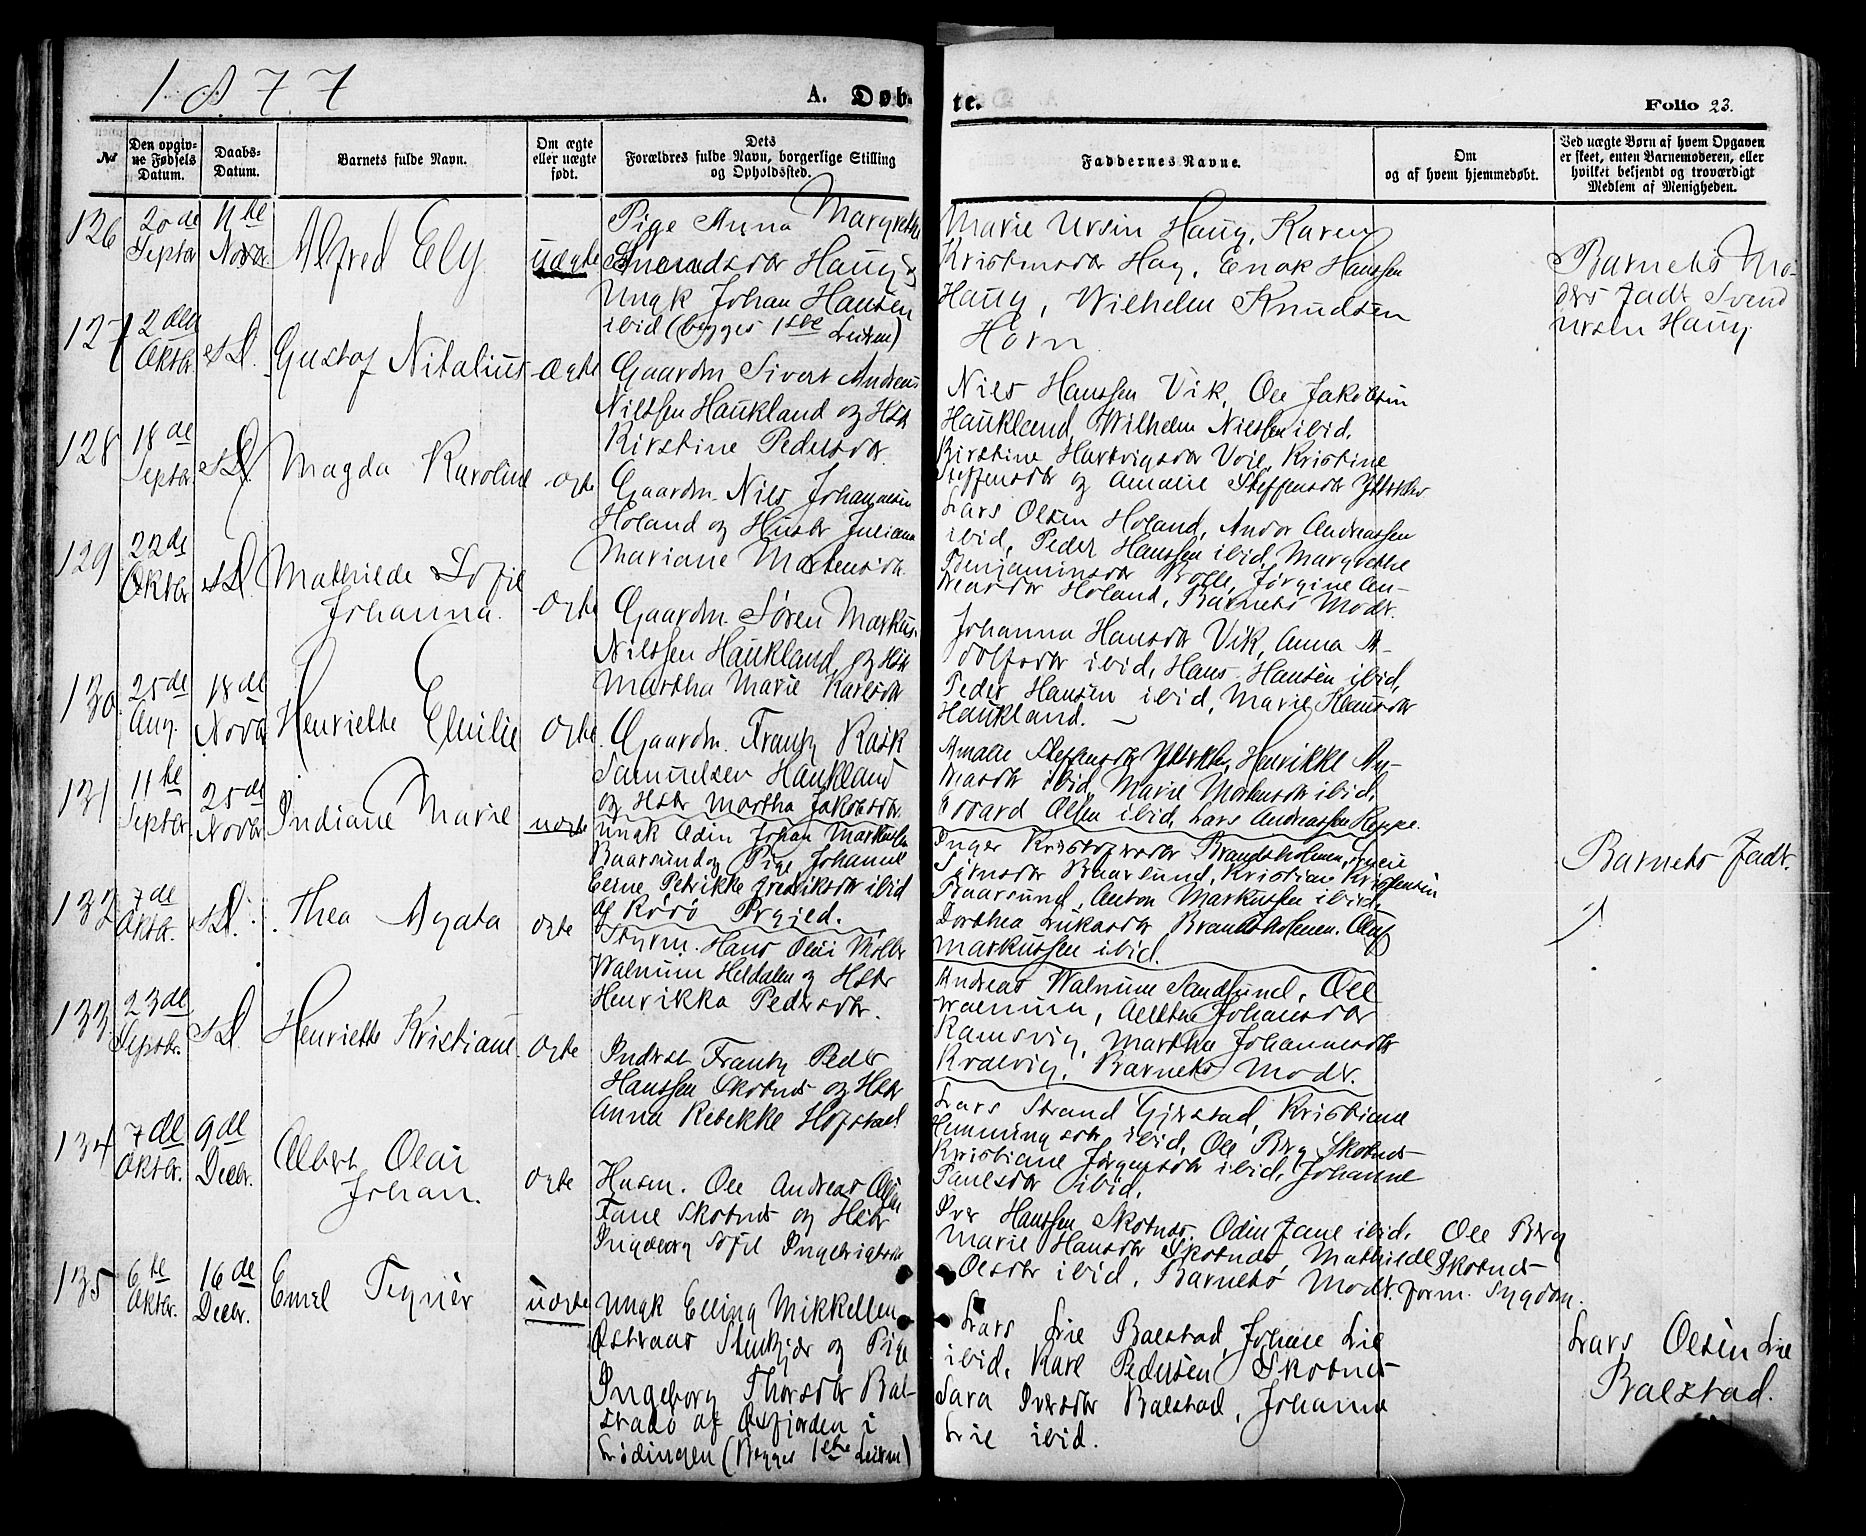 1877
A. Døb-
te.
Folio 23.
№
Den opgiv-
ne Fødsels
Datum.
Daabs-
Datum.
Barnets fulde Navn.
Om ægte
eller uægte
født.
Dets
Forældres fulde Navn, borgerlige Stilling
og Opholdssted.
Faddernes Navne.
Om
og af hvem hjemmedøbt.
Ved uægte Børn af hvem Opgaven
er skeet, enten Barnemoderen, eller
hvilket bekjendt og troværdigt
Medlem af Menigheden.
126
20de
Septbr
11te
Novbr
Alfred Ely
uægte
Pige Anna Margrethe
Haug og
Ungk Johan Hansen
ibid (begges 1ste Leierm)
Marie Ursin Haug, Karen
Kristensdtr Hag, Enok Hanssen
Haug, Wilhelm Knudsen
Horn
Barnets Mo-
ders Fadr Svend
Ursin Haug
127
2den
Oktbr
s.D.
Gustaf Nitalius
ægte
Gaardm Sivert Andreas
Nilssen Haukland og Hstr
Kirstine Pedersdtr
Nils Hanssen Vik, Ole Jakobsen
Haukland, Wilhelm Nilssen ibid,
Kirstine Hartvigsdtr Voie, Kristine
Steffensdtr og Amalie Steffensdtr
128
18de
Septbr
s.D.
Magda Karoline
ægte
Gaardm. Nils Johannesen
Holand og Hustr Juliana
Mariane Mortensdtr.
Lars Olsen Holand, Andor Andreassen
ibid, Peder Hanssen ibid, Margrethe
Benjaminsdtr Bolle, Jørgine An-
dreasdtr Holand, Barnets Modr.
129
22de
Oktbr
s.D.
Mathilde Sofie
Johanna.
ægte
Gaardm. Søren Markus
Nilssen Haukland og Hstr
Martha Marie Karlsdtr
Johanna Hansdtr Vik, Anna A-
dolfsdtr ibid, Hans Hansen ibid,
Peder Hansen ibid, Marie Klausdtr
Haukland.
130
25de
Aug.
18de
Novbr
Henriette Emilie
ægte.
Gaardm. Frantz Rask
Samuelsen Haukland
og Hstr Martha Jakobsdtr
Amalie Steffensdtr Henrikke An-
dreasdtr ibid, Marie Markusdtr ibid,
Edvard Olsen ibid, Lars Andreassen Reppe.
131
11te
Septbr
25de
Novbr
Indiane Marie
uægte
Ungk Odin Johan Markussen
Baarsund og Pige Johanne
Petrikke Fredriksdtr ibid
af Rørø Prgjed.
Inger Kristofersdtr Brandsholmen,
Baarsund, Kristiane Kristensen
Baarsund, Anton Markussen ibid,
Dorthea Lukasdtr Brandsholmen. Oluf
Markussen ibid.
Barnets Fadr.
132
7de
Oktbr.
s.D.
Thea Agata
ægte
Styrm. Hans Olai Møller
Walnum Heldalen og Hstr
Henrikka Pedersdtr.
Andreas Walnum Sandsund, Ole
Walnum, Johansdtr
Ramsvig, Martha Johannesdtr
Kralvig, Barnets Modr.
133
23de
Septbr.
s.D.
Henriette Kristiane
ægte
Inderst Frantz Peder
Hanssen Skotnes og Hstr
Anna Rebekke Hofstad
Lars Strand Gjerstad, Kristiane
Hemmingsdtr ibid, Ole Berg Skotnes
Kristiane Jørgensdtr ibid, Johanne
Paulsdtr ibid.
134
7de
Oktbr.
9de
Decbr.
Albert Olai
Johan.
ægte
Husm. Ole Andreas Olsen
Fane Skotnes og Hstr
Ingeborg Sofie Ingebrigtsdtr
Iver Hanssen Skotnes, Odin Fane ibid,
Marie Hansdtr Skotnes, Mathilde
Olsdtr ibid. Barnets Modr.
Ole Berg
Skotnes
form. Sygdom.
135
6te
Oktbr.
16de
Decbr.
Emil Tegnér
uægte
Ungk Elling Mikkelsen
Østraas Stenkjær og Pige
Ingeborg Thorsdtr Bal-
stads af Øsfjorden i
Lødingen (Begges 1ste Leierm)
Lars Lie Balstad, Johane Lie
ibid, Karl Pedersen Skotnes
Sara Iversdtr Balstad, Johanna
Lie ibid.
Lars Olsen Lie
Balstad.